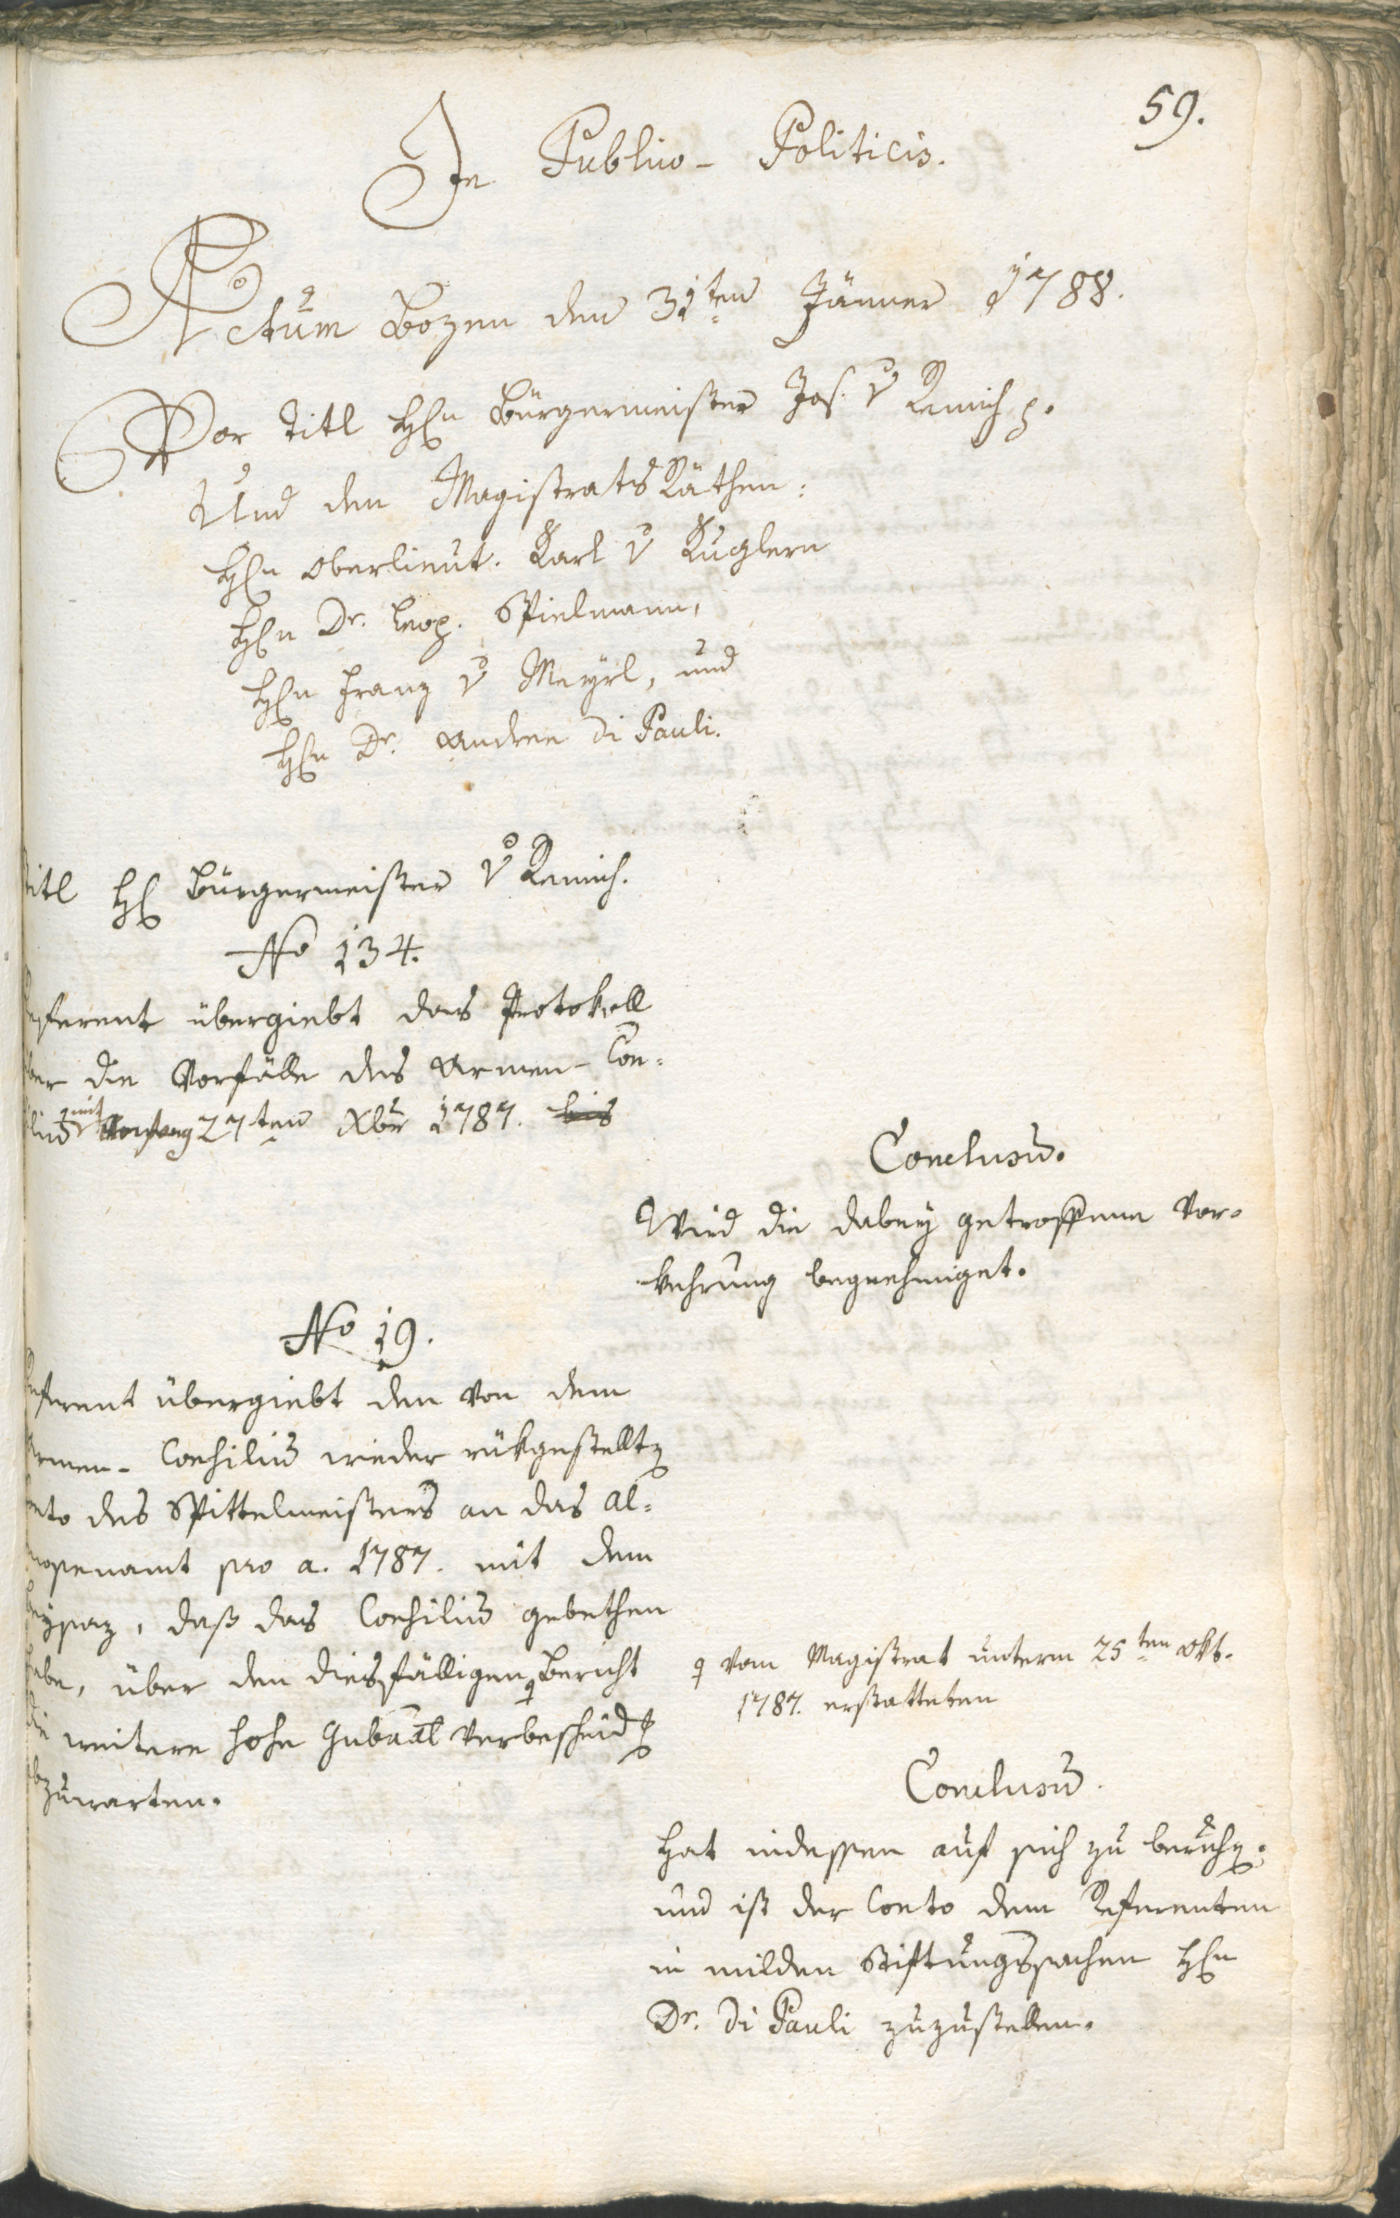 59.
In Publico-Politicis.
Actum Bozen den 31ten Jänner 1788.
Vor Titl Hℓn Bürgermeister Jos. v Remich p.
Und den Magistrats Räthen:
Hℓn Oberlieut. Karl v Kuglern
Hℓn Dr. Leop. Spielmann,
Hℓn Franz v Mayrl, und
Hℓn Dr. Andree Di Pauli.
Titl Hℓ Bürgermeister v Remich.
No 134.
Referent übergiebt das Protokoll
über die Vorfälle des Armen-Con=
siliu mit 27ten Xbr 1787. bis
Conclusu.
Wird die dabey getroffene Vor-
kehrung begnehmiget.
No 19.
Referent übergiebt den von dem
Armen-Consiliu wieder rükgestellt
Conto des Spittelmeisters an das Al=
mosenamt pro a. 1787. mit dem
Beysaz, daß das Consiliu gebethen
habe, über den diesfälligen Bericht
vom Magistrat unterm 25ten Okt.
1787. erstatteten
die weitere hohe Gubaal Verbescheid
abzuwarten.
Conclusu.
Hat indessen auf sich zu beruh;
und ist der Conto dem Referenten
in milden Stiftungssachen Hℓn
Dr. Di Pauli zuzustellen.